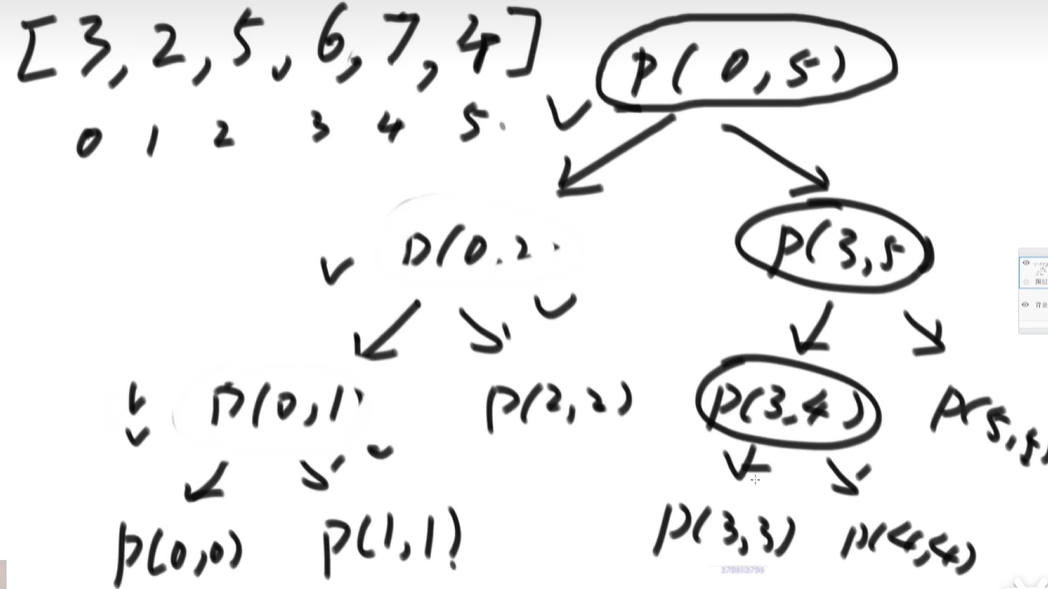 [3, 2, 5, 6, 7, 4]
p(0,5)
0 1 2 3 4 5
p(0,2
p(3,5
p(0,1)
p(2,2)
p(3,4)
p(5,5
p(0,0)
p(1,1)
p(3,3)
p(4,4)